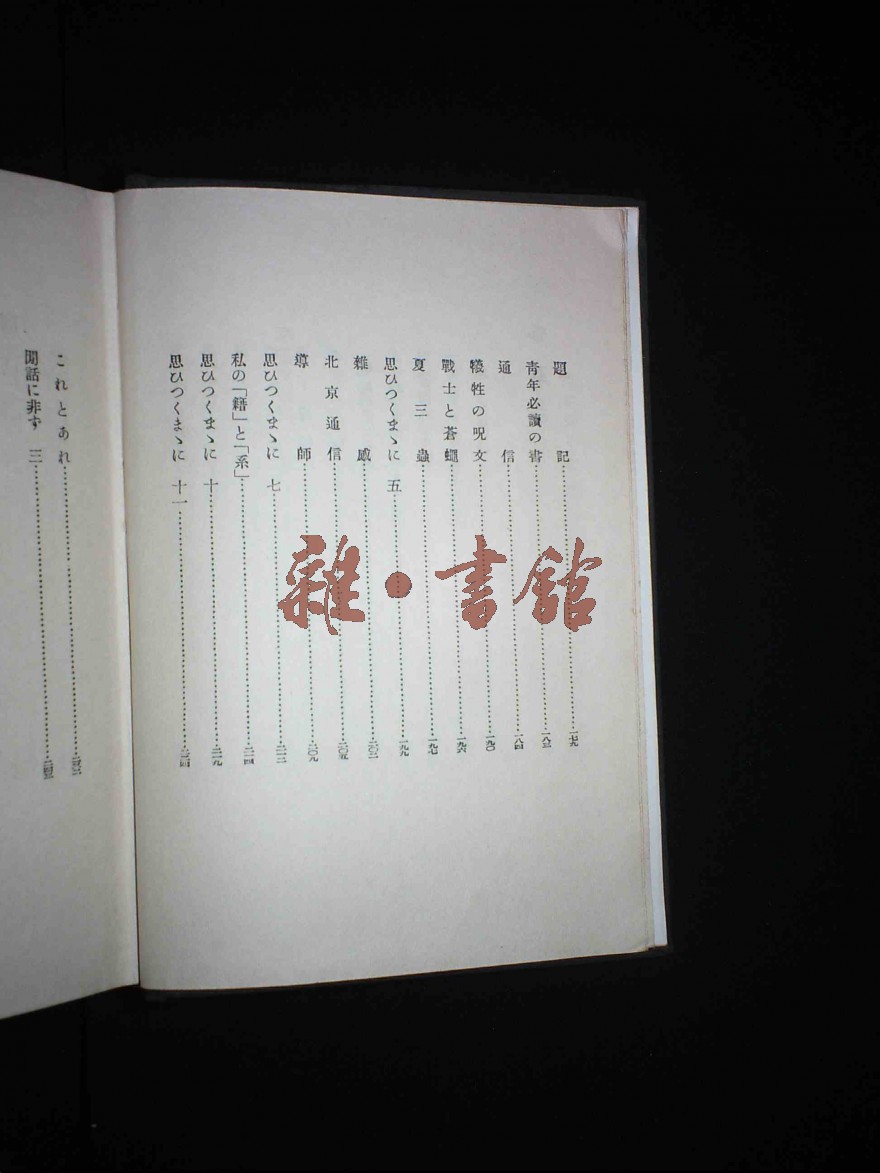 題記……一七九
青年必讀の書……一八三
通信……一八四
犧牲の呪文……一九〇
戰士と蒼蠅……一九六
夏三蟲……一九七
思ひつくまゝに 五……一九九
雜感……二〇二
北京通信……二〇五
導師……二〇九
思ひつくまゝに 七……二一二
私の「籍」と「系」……二一四
思ひつくまゝに 十……二一九
思ひつくまゝに 十一……二二四
これとあれ
閒話に非ず 三
雜·書館